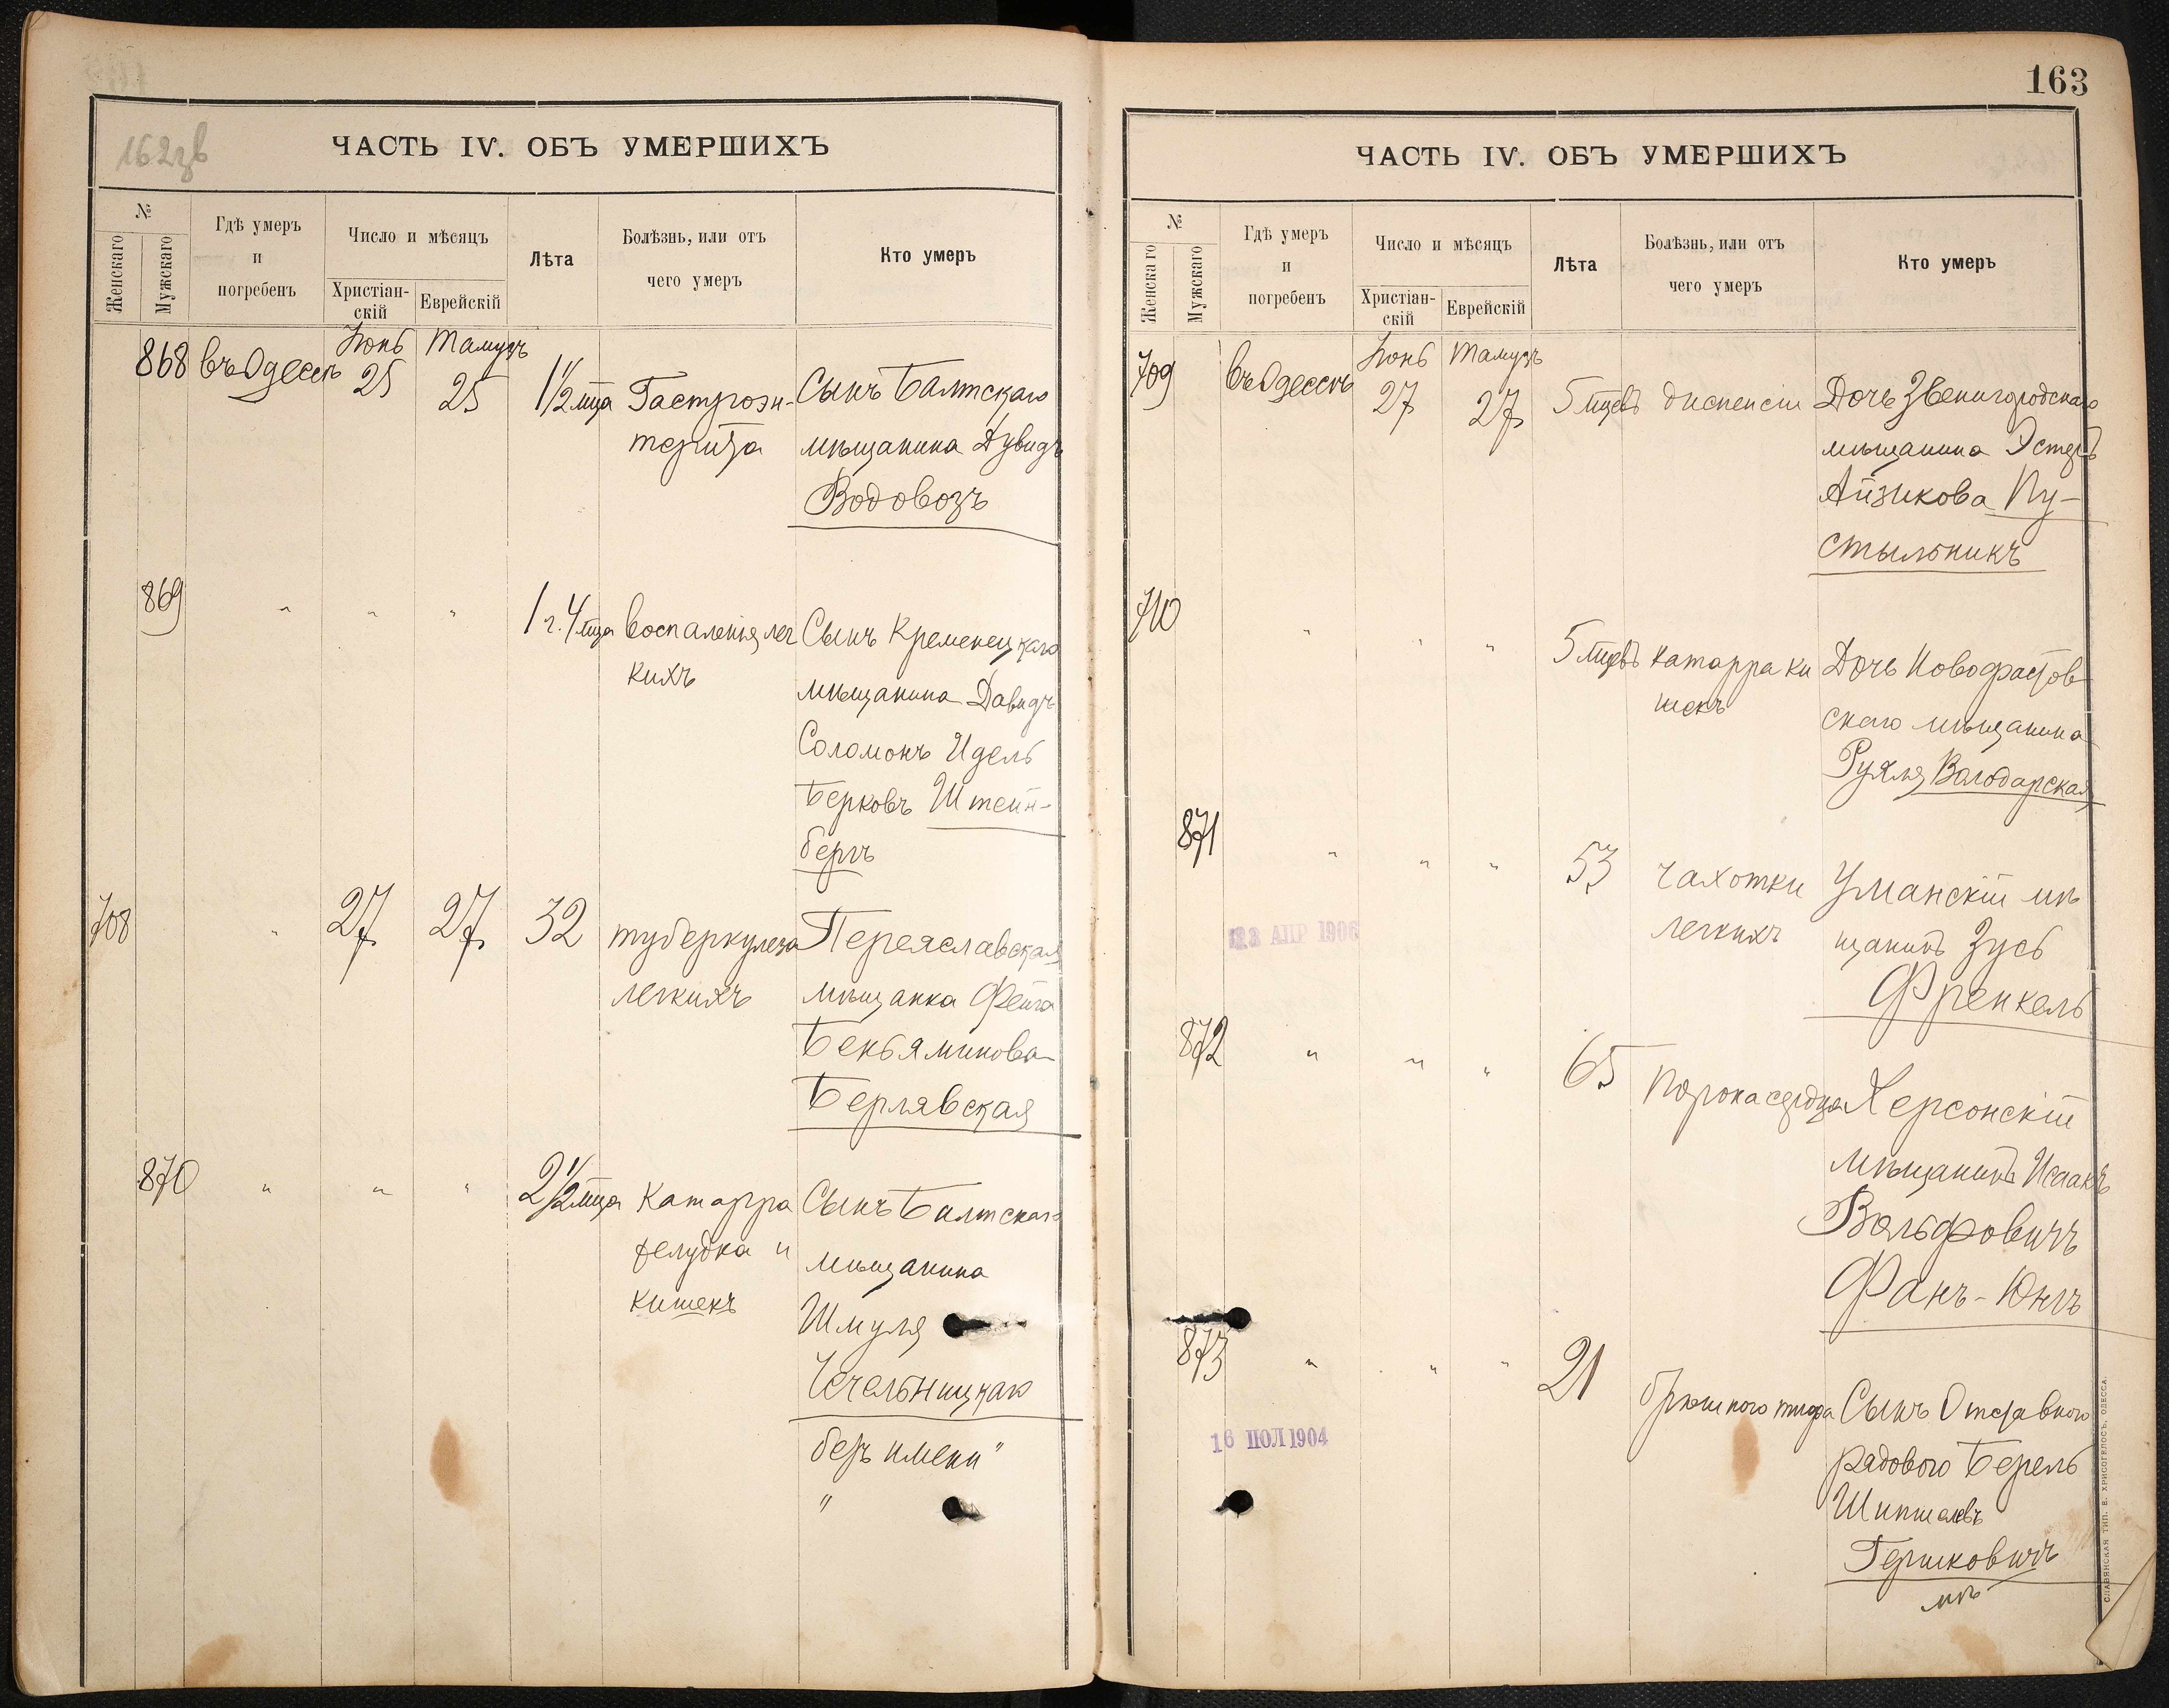 162зв
ЧАСТЬ IV. ОБЪ УМЕРШИХЪ
№
Женскаго
Мужскаго
Гдѣ умеръ
и
погребенъ
Число и мѣсяцъ
Христіан-
скій
Еврейскій
Лѣта
Болѣзнь, или отъ
чего умеръ
Кто умеръ
Іюнь Тамузъ
868 въ Одессѣ 25 25 1 1/2 мца Гастроэн- Сынъ Балтскаго
терита мѣщанина Дувидъ
Водовозъ
869 " " " 1 г. 4 мца воспаленія лег Сынъ Кременецкаго
кихъ мѣщанина Давидъ
Соломонъ Идель
Берковъ Штейн-
бергъ
708 " 27 27 32 туберкулеза Переяславская
легкихъ мѣщанка Фейга
Беньяминова
Берлявская
870 " " " 2 1/2 мца Катарра Сынъ Балтскаго
желудка и мѣщанина
кишекъ Шмуля
Чечельницкаго
безъ имени "
"
163
ЧАСТЬ IV. ОБЪ УМЕРШИХЪ
№
Женскаго
Мужскаго
Гдѣ умеръ
и
погребенъ
Число и мѣсяцъ
Христіан-
скій
Еврейскій
Лѣта
Болѣзнь, или отъ
чего умеръ
Кто умеръ
Іюнь Тамузъ
709 въ Одессѣ 27 27 5 мцевъ диспепсіи Дочь Звенигородскаго
мѣщанина Эстеръ
Айзикова Пу-
стыльникъ
710 " " " 5 мцевъ катарра ки Дочь Новофастов
шекъ скаго мѣщанина
Рухля Володарская
871 " " " 53 чахотки Уманскій мѣ
легкихъ щанинъ Зусь
Френкель
АПР 1906
872 " " " 65 порока сердца Херсонскій
мѣщанинъ Исаакъ
Вольфовичъ
Фанъ-Юнгъ
873 " " " 21 брюшного тифа Сынъ Отставного
рядового Берель
Герщковичъ
16 ІЮЛ 1904
СЛАВЯНСКАЯ ТИП. Е. ХРИСОГЕЛОСЪ, ОДЕССА.